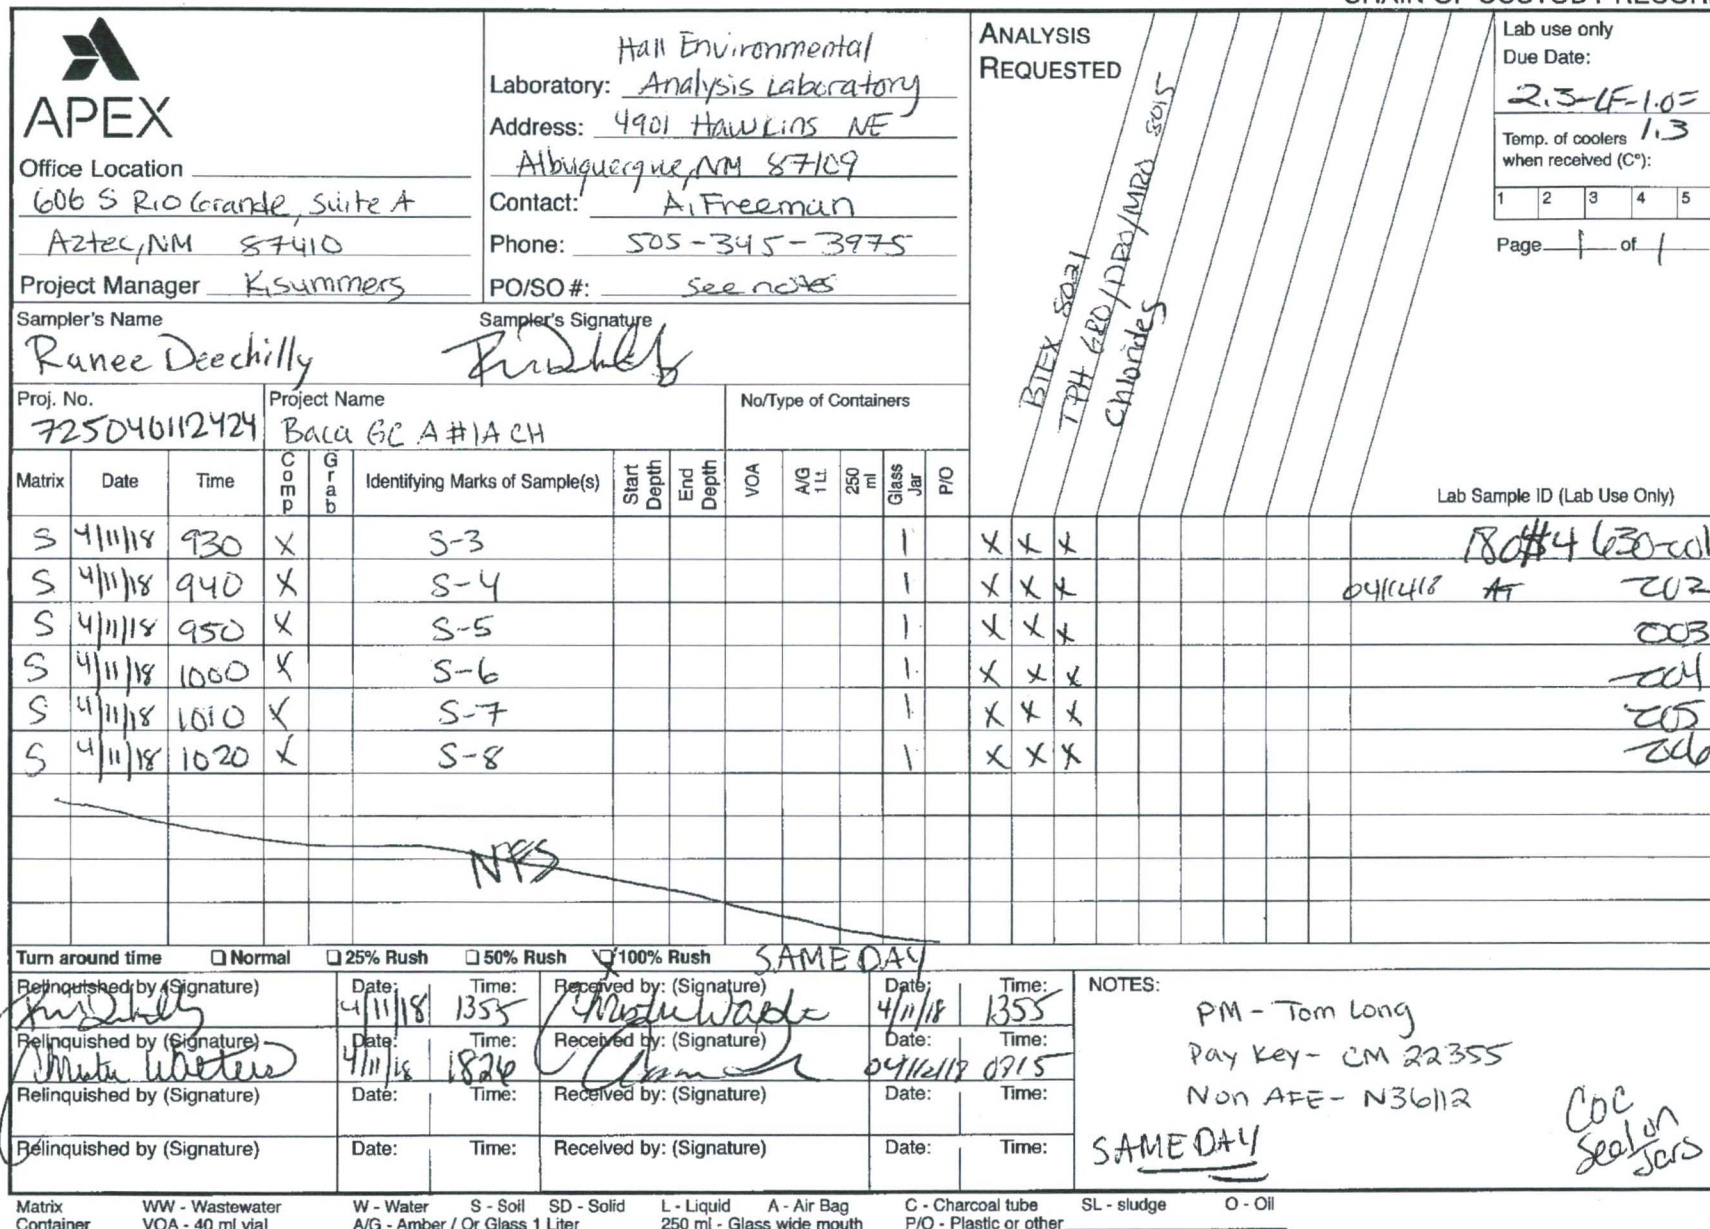 CHAIN OF CUSTODY RECORD
APEX
Office Location
606 S Rio Grande, Suite A
Aztec, NM 87410
Project Manager K. Summers
Hall Environmental
Laboratory: Analysis Laboratory
Address: 4901 Hawkins NE
Albuquerque, NM 87109
Contact: A. Freeman
Phone: 505-345-3975
PO/SO #: See notes
ANALYSIS
REQUESTED
BTEX 8021
TPH GRO/DRO/MRO 8015
Chlorides
Lab use only
Due Date:
2.3-CF-1.0=
Temp. of coolers 1.3
when received (C°):
1 2 3 4 5
Page 1 of 1
Sampler's Name
Ranee Deechilly
Sampler's Signature
Proj. No.
725040112424
Project Name
Baca GC A #1A CH
No/Type of Containers
Matrix Date Time Comp Grab Identifying Marks of Sample(s) Start Depth End Depth VOA A/G 1 Lt. 250 ml Glass Jar P/O Lab Sample ID (Lab Use Only)
S 4/11/18 930 X S-3 1 X X X 630-001
S 4/11/18 940 X S-4 1 X X X AT 002
S 4/11/18 950 X S-5 1 X X X 003
S 4/11/18 1000 X S-6 1 X X X -004
S 4/11/18 1010 X S-7 1 X X X 005
S 4/11/18 1020 X S-8 1 X X X -006
NFS
Turn around time Normal 25% Rush 50% Rush 100% Rush SAME DAY
Relinquished by (Signature) Date: 4/11/18 Time: 1355 Received by: (Signature) Date: 4/11/18 Time: 1355
Relinquished by (Signature) Christine Walters Date: 4/11/18 Time: 1826 Received by: (Signature) Date: 04/12/18 Time: 0715
Relinquished by (Signature) Date: Time: Received by: (Signature) Date: Time:
Relinquished by (Signature) Date: Time: Received by: (Signature) Date: Time:
NOTES:
PM - Tom Long
Pay Key - CM 22355
Non AFE - N36112
SAME DAY
COC
Seal on
Jars
Matrix WW - Wastewater W - Water S - Soil SD - Solid L - Liquid A - Air Bag C - Charcoal tube SL - sludge O - Oil
Container VOA - 40 ml vial A/G - Amber / Or Glass 1 Liter 250 ml - Glass wide mouth P/O - Plastic or other